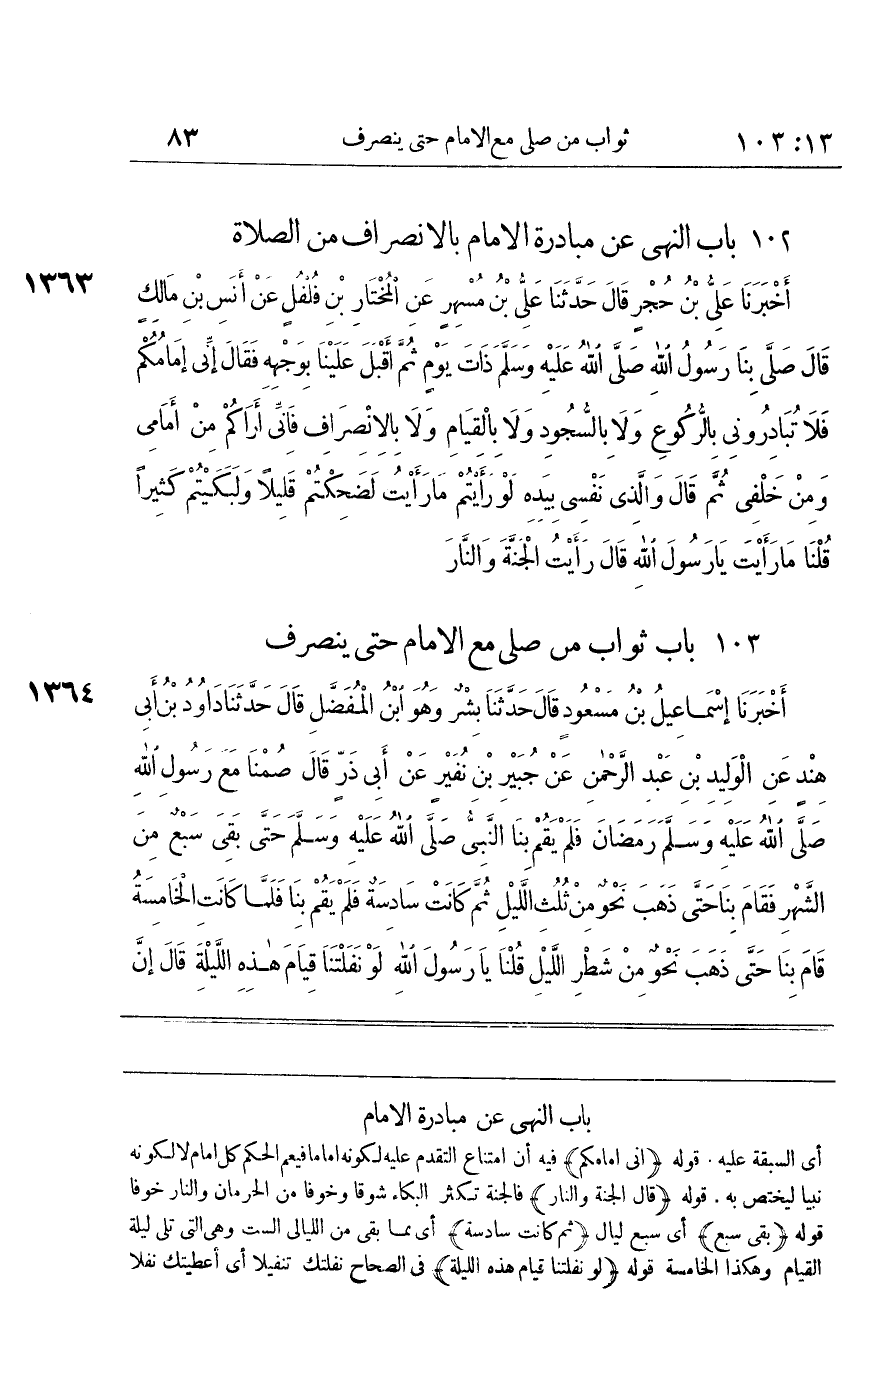 ١٣: ١٠٣ ثواب من صلى مع الامام حتى ينصرف ٨٣
١٠٢ باب النهى عن مبادرة الامام بالانصراف من الصلاة
١٣٦٣
أَخْبَرَنَا عَلِىُّ بْنُ حُجْرٍ قَالَ حَدَّثَنَا عَلِىُّ بْنُ مُسْهِرٍ عَنِ الْمُخْتَارِ بْنِ فُلْفُلٍ عَنْ أَنَسِ بْنِ مَالِكٍ
قَالَ صَلَّى بِنَا رَسُولُ اللهِ صَلَّى اللهُ عَلَيْهِ وَسَلَّمَ ذَاتَ يَوْمٍ ثُمَّ أَقْبَلَ عَلَيْنَا بِوَجْهِهِ فَقَالَ إِنِّى إِمَامُكُمْ
فَلَا تُبَادِرُونِى بِالرُّكُوعِ وَلَا بِالسُّجُودِ وَلَا بِالْقِيَامِ وَلَا بِالِانْصِرَافِ فَانِّى أَرَاكُمْ مِنْ أَمَامِى
وَمِنْ خَلْفِى ثُمَّ قَالَ وَالَّذِى نَفْسِى بِيَدِهِ لَوْ رَأَيْتُمْ مَا رَأَيْتُ لَضَحِكْتُمْ قَلِيلًا وَلَبَكَيْتُمْ كَثِيراً
قُلْنَا مَا رَأَيْتَ يَا رَسُولَ اللهِ قَالَ رَأَيْتُ الْجَنَّةَ وَالنَّارَ
١٠٣ باب ثواب من صلى مع الامام حتى ينصرف
١٣٦٤
أَخْبَرَنَا إِسْمَاعِيلُ بْنُ مَسْعُودٍ قَالَ حَدَّثَنَا بِشْرٌ وَهُوَ ابْنُ الْمُفَضَّلِ قَالَ حَدَّثَنَا دَاوُدُ بْنُ أَبِى
هِنْدٍ عَنِ الْوَلِيدِ بْنِ عَبْدِ الرَّحْمٰنِ عَنْ جُبَيْرِ بْنِ نُفَيْرٍ عَنْ أَبِى ذَرٍّ قَالَ صُمْنَا مَعَ رَسُولِ اللهِ
صَلَّى اللهُ عَلَيْهِ وَسَلَّمَ رَمَضَانَ فَلَمْ يَقُمْ بِنَا النَّبِىُّ صَلَّى اللهُ عَلَيْهِ وَسَلَّمَ حَتَّى بَقِىَ سَبْعٌ مِنَ
الشَّهْرِ فَقَامَ بِنَا حَتَّى ذَهَبَ نَحْوٌ مِنْ ثُلُثِ اللَّيْلِ ثُمَّ كَانَتْ سَادِسَةٌ فَلَمْ يَقُمْ بِنَا فَلَمَّا كَانَتِ الْخَامِسَةُ
قَامَ بِنَا حَتَّى ذَهَبَ نَحْوٌ مِنْ شَطْرِ اللَّيْلِ قُلْنَا يَا رَسُولَ اللهِ لَوْ نَفَلْتَنَا قِيَامَ هٰذِهِ اللَّيْلَةِ قَالَ إِنَّ
باب النهى عن مبادرة الامام
أى السبقة عليه. قوله ﴿انى امامكم﴾ فيه أن امتناع التقدم عليه لكونه اماما فيعم الحكم كل امام لا لكونه
نبيا ليختص به. قوله ﴿قال الجنة والنار﴾ فالجنة تكثر البكاء شوقا وخوفا من الحرمان والنار خوفا
قوله ﴿بقى سبع﴾ أى سبع ليال ﴿ثم كانت سادسة﴾ أى مما بقى من الليالى الست وهى التى تلى ليلة
القيام وهكذا الخامسة قوله ﴿لو نفلتنا قيام هذه الليلة﴾ فى الصحاح نفلتك تنفيلا أى أعطيتك نفلا